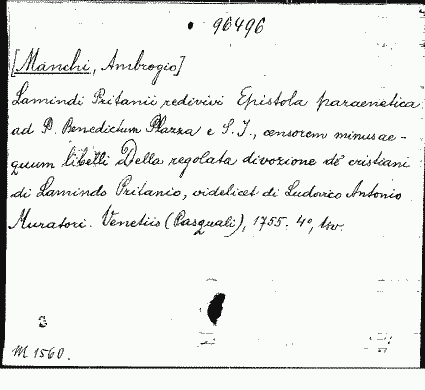 96496
[Manchi, Ambrogio]
Lamindi Pritanii redivivi Epistola paraenetica
ad P. Benedictum Plazza e S. J., censorem minus ae-
quum libelli Della regolata divozione de' cristiani
di Lamindo Pritanio, videlicet di Ludovico Antonio
Muratori. Venetiis (Pasquali), 1755. 4º,
M 1560.